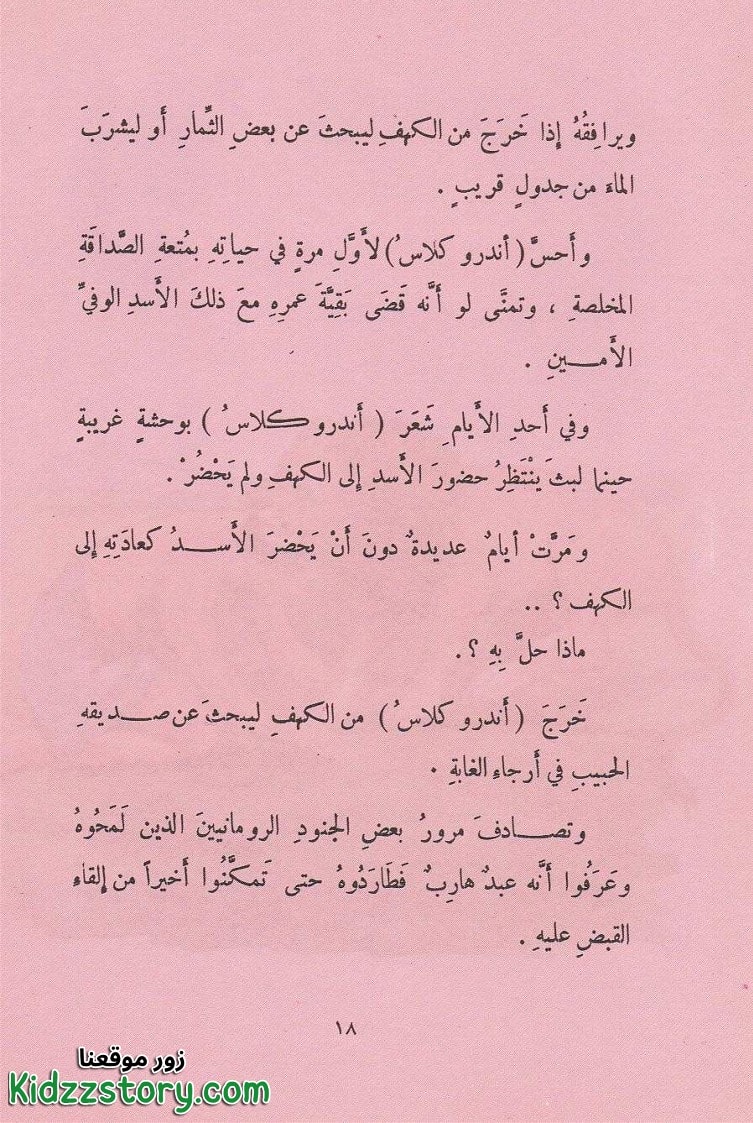 ويرافِقُهُ إذا خَرَجَ من الكهفِ ليبحثَ عن بعضِ الثِّمارِ أَو ليشرَبَ
الماءَ من جدولٍ قريبٍ .
وأَحسَّ (أندروكلاسُ) لأَوَّلِ مرةٍ في حياتِهِ بمُتعةِ الصَّداقَةِ
المخلصةِ ، وتمنَّى لو أَنَّه قَضَى بَقِيَّةَ عمرِهِ معَ ذلكَ الأَسدِ الوفيِّ
الأَمــينِ .
وفي أَحدِ الأَيامِ شَعَرَ ( أَندروكلاسُ ) بوحشةٍ غريبةٍ
حينما لبثَ يَنْتَظِرُ حضورَ الأَسدِ إِلى الكهفِ ولم يَحْضُرْ .
ومَرَّتْ أيامٌ عديدةٌ دونَ أَنْ يَحْضرَ الأَســدُ كعادَتِهِ إِلى
الكهف ؟ ..
ماذا حلَّ بِهِ ؟ .
خَرَجَ (أَندروكلاسُ) من الكهفِ ليبحثَ عن صـديقهِ
الحبيبِ في أَرجاءِ الغابةِ .
وتصـادفَ مرورُ بعضِ الجنودِ الرومانيينَ الذين لَمَحُوهُ
وعَرَفُوا أَنَّه عبدٌ هاربٌ فَطَارَدُوهُ حتى تَمكَّنُوا أَخيراً من إِلقاءِ
القبضِ عليهِ .
١٨
زور موقعنا
Kidzzstory.com